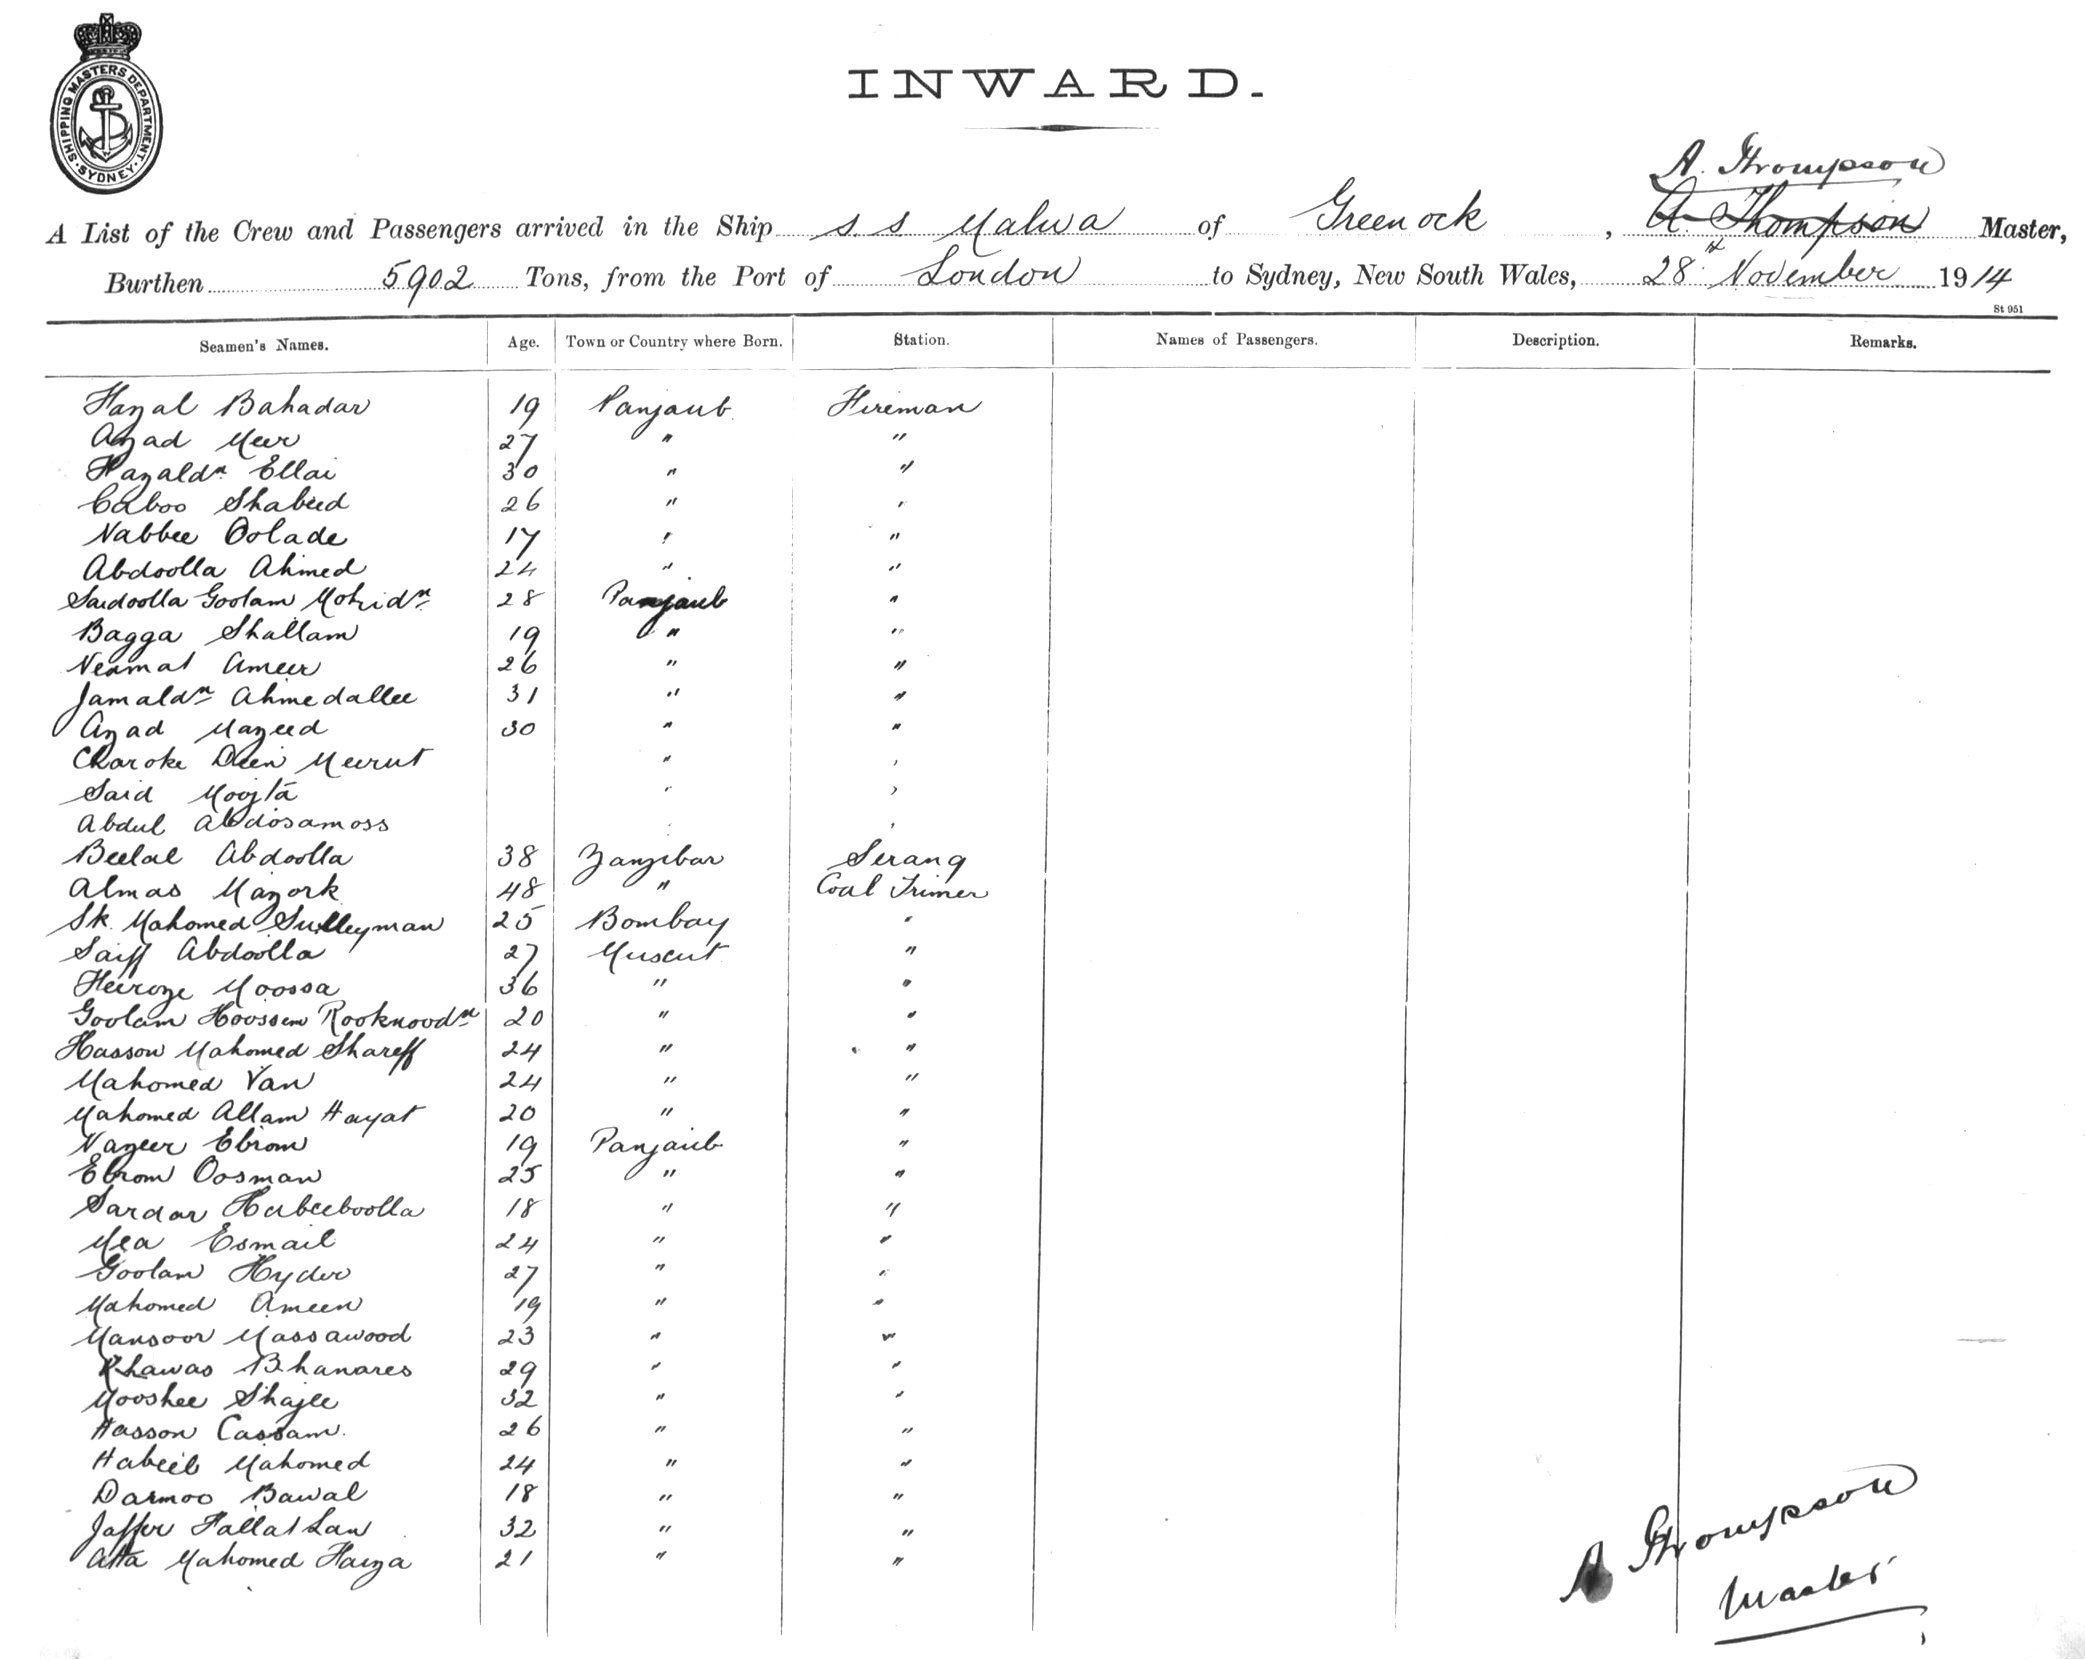 SHIPPING MASTERS DEPARTMENT. SYDNEY
INWARD.
A. Thompson
A List of the Crew and Passengers arrived in the Ship s.s Malwa of Greenock, A. Thompson Master,
Burthen 5902 Tons, from the Port of London to Sydney, New South Wales, 28th November 1914
St 951
Seamen's Names. Age. Town or Country where Born. Station. Names of Passengers. Description. Remarks.
Fazal Bahadar 19 Panjaub Fireman
Azad Meer 27 " "
Fazaldn Ellai 30 " "
Caboo Shabeed 26 " "
Nabbee Oolade 17 " "
Abdoolla Ahmed 24 " "
Saidoolla Goolam Mohidn 28 Panjaub "
Bagga Shallam 19 " "
Neamat Ameer 26 " "
Jamaldn Ahmedallee 31 " "
Azad Mazeed 30 " "
Charoke Deen Meerut " "
Said " "
Abdul Abdosamoss " "
Beelal Abdoolla 38 Zanzibar Serang
Almas Mazork 48 " Coal Trimer
Sk. Mahomed Sulleyman 25 Bombay "
Saiff Abdoolla 27 Muscut "
Feeroze Moossa 36 " "
Goolam Hoossen Rooknoodn 20 " "
Hasson Mahomed Shareff 24 " "
Mahomed Van 24 " "
Mahomed Allam Hayat 20 " "
Nazeer Ebrom 19 Panjaub "
Ebrom Oosman 25 " "
Sardar Habeeboolla 18 " "
Mea Esmail 24 " "
Goolam Hyder 27 " "
Mahomed Ameen 19 " "
Mansoor Massawood 23 " "
Khawas Bhanares 29 " "
Mooshee Shajee 32 " "
Hasson Cassam. 26 " "
Habeeb Mahomed 24 " "
Darmoo Bawal 18 " "
Jaffer Fallat Lan 32 " "
Atta Mahomed Faiza 21 " "
A Thompson
Master